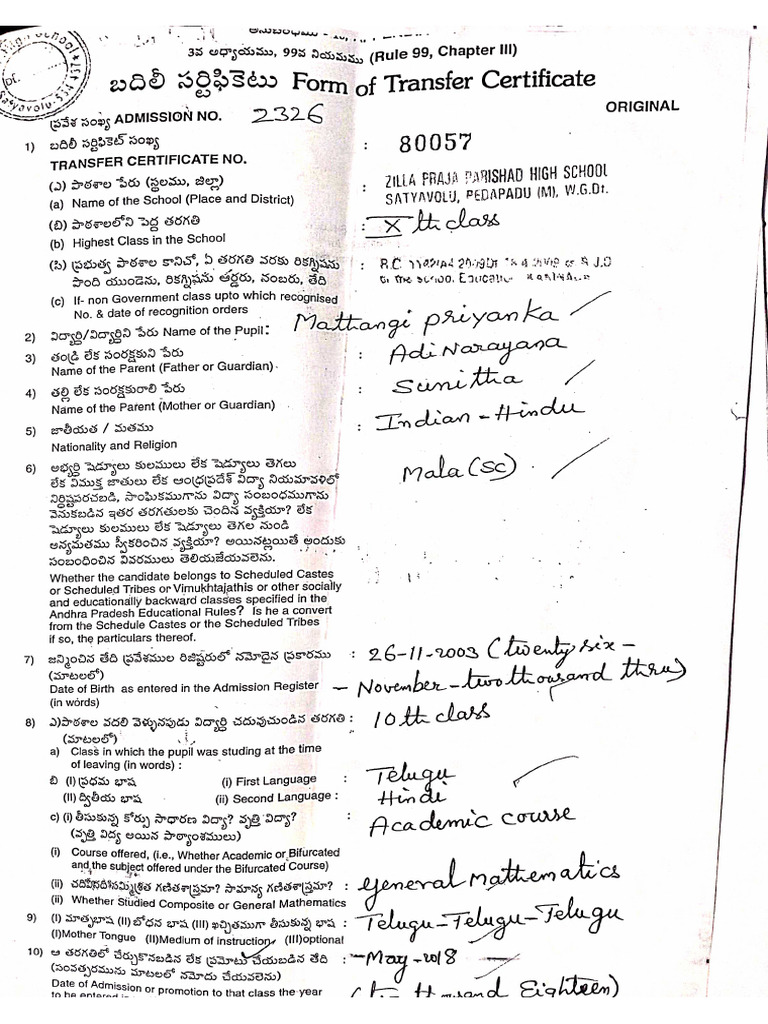 3వ అధ్యాయము, 99వ నియమము (Rule 99, Chapter III)
బదిలీ సర్టిఫికెటు Form of Transfer Certificate
ORIGINAL
ప్రవేశ సంఖ్య ADMISSION NO. 2326
1) బదిలీ సర్టిఫికెట్ సంఖ్య : 80057
TRANSFER CERTIFICATE NO.
(ఎ) పాఠశాల పేరు (స్థలము, జిల్లా) : ZILLA PRAJA PARISHAD HIGH SCHOOL
(a) Name of the School (Place and District) SATYAVOLU, PEDAPADU (M), W.G.Dt.
(బి) పాఠశాలలోని పెద్ద తరగతి : Xth class
(b) Highest Class in the School
(సి) ప్రభుత్వ పాఠశాల కానిచో, ఏ తరగతి వరకు రికగ్నిషను :
పొంది యుండెను, రికగ్నిషను ఆర్డరు, నంబరు, తేది
(c) If- non Government class upto which recognised
No. & date of recognition orders
2) విద్యార్థి/విద్యార్థిని పేరు Name of the Pupil : Mathangi priyanka
3) తండ్రి లేక సంరక్షకుని పేరు : Adi Narayana
Name of the Parent (Father or Guardian)
4) తల్లి లేక సంరక్షకురాలి పేరు : Sunitha
Name of the Parent (Mother or Guardian)
5) జాతీయత / మతము : Indian - Hindu
Nationality and Religion
6) అభ్యర్థి షెడ్యూలు కులములు లేక షెడ్యూలు తెగలు Mala (SC).
లేక విముక్త జాతులు లేక ఆంధ్రప్రదేశ్ విద్యా నియమావళిలో
నిర్దిష్టపరచబడి, సాంఘికముగాను విద్యా సంబంధముగాను
వెనుకబడిన ఇతర తరగతులకు చెందిన వ్యక్తియా? లేక
షెడ్యూలు కులములు లేక షెడ్యూలు తెగల నుండి
అన్యమతము స్వీకరించిన వ్యక్తియా? అయినట్లయితే అందుకు
సంబంధించిన వివరములు తెలియజేయవలెను.
Whether the candidate belongs to Scheduled Castes
or Scheduled Tribes or Vimukhtajathis or other socially
and educationally backward classes specified in the
Andhra Pradesh Educational Rules? Is he a convert
from the Schedule Castes or the Scheduled Tribes
if so, the particulars thereof.
7) జన్మించిన తేది ప్రవేశముల రిజిష్టరులో నమోదైన ప్రకారము : 26-11-2003 (twenty six -
(మాటలలో)
Date of Birth as entered in the Admission Register - November - two thousand three)
(in words)
8) ఎ)పాఠశాల వదలి వెళ్ళునపుడు విద్యార్థి చదువుచుండిన తరగతి : 10th class
(మాటలలో)
a) Class in which the pupil was studing at the time
of leaving (in words) :
బి (I) ప్రథమ భాష (i) First Language : Telugu
(II) ద్వితీయ భాష (ii) Second Language : Hindi
c) (i) తీసుకున్న కోర్సు సాధారణ విద్యా? వృత్తి విద్యా? : Academic course
(వృత్తి విద్య అయిన పాఠ్యాంశములు)
(i) Course offered, (i.e., Whether Academic or Bifurcated
and the subject offered under the Bifurcated Course)
(ii) గణితశాస్త్రమా? సామాన్య గణితశాస్త్రమా? : General Mathematics
(ii) Whether Studied Composite or General Mathematics
9) (I) మాతృభాష (II) బోధన భాష (III) ఖచ్చితముగా తీసుకున్న భాష : Telugu - Telugu - Telugu
(I)Mother Tongue (II)Medium of instruction (III)optional
10) ఆ తరగతిలో చేర్చుకొనబడిన లేక ప్రమోటు చేయబడిన తేది : - May - 2018 -
(సంవత్సరమును మాటలలో నమోదు చేయవలెను)
Date of Admission or promotion to that class the year
Eighteen)